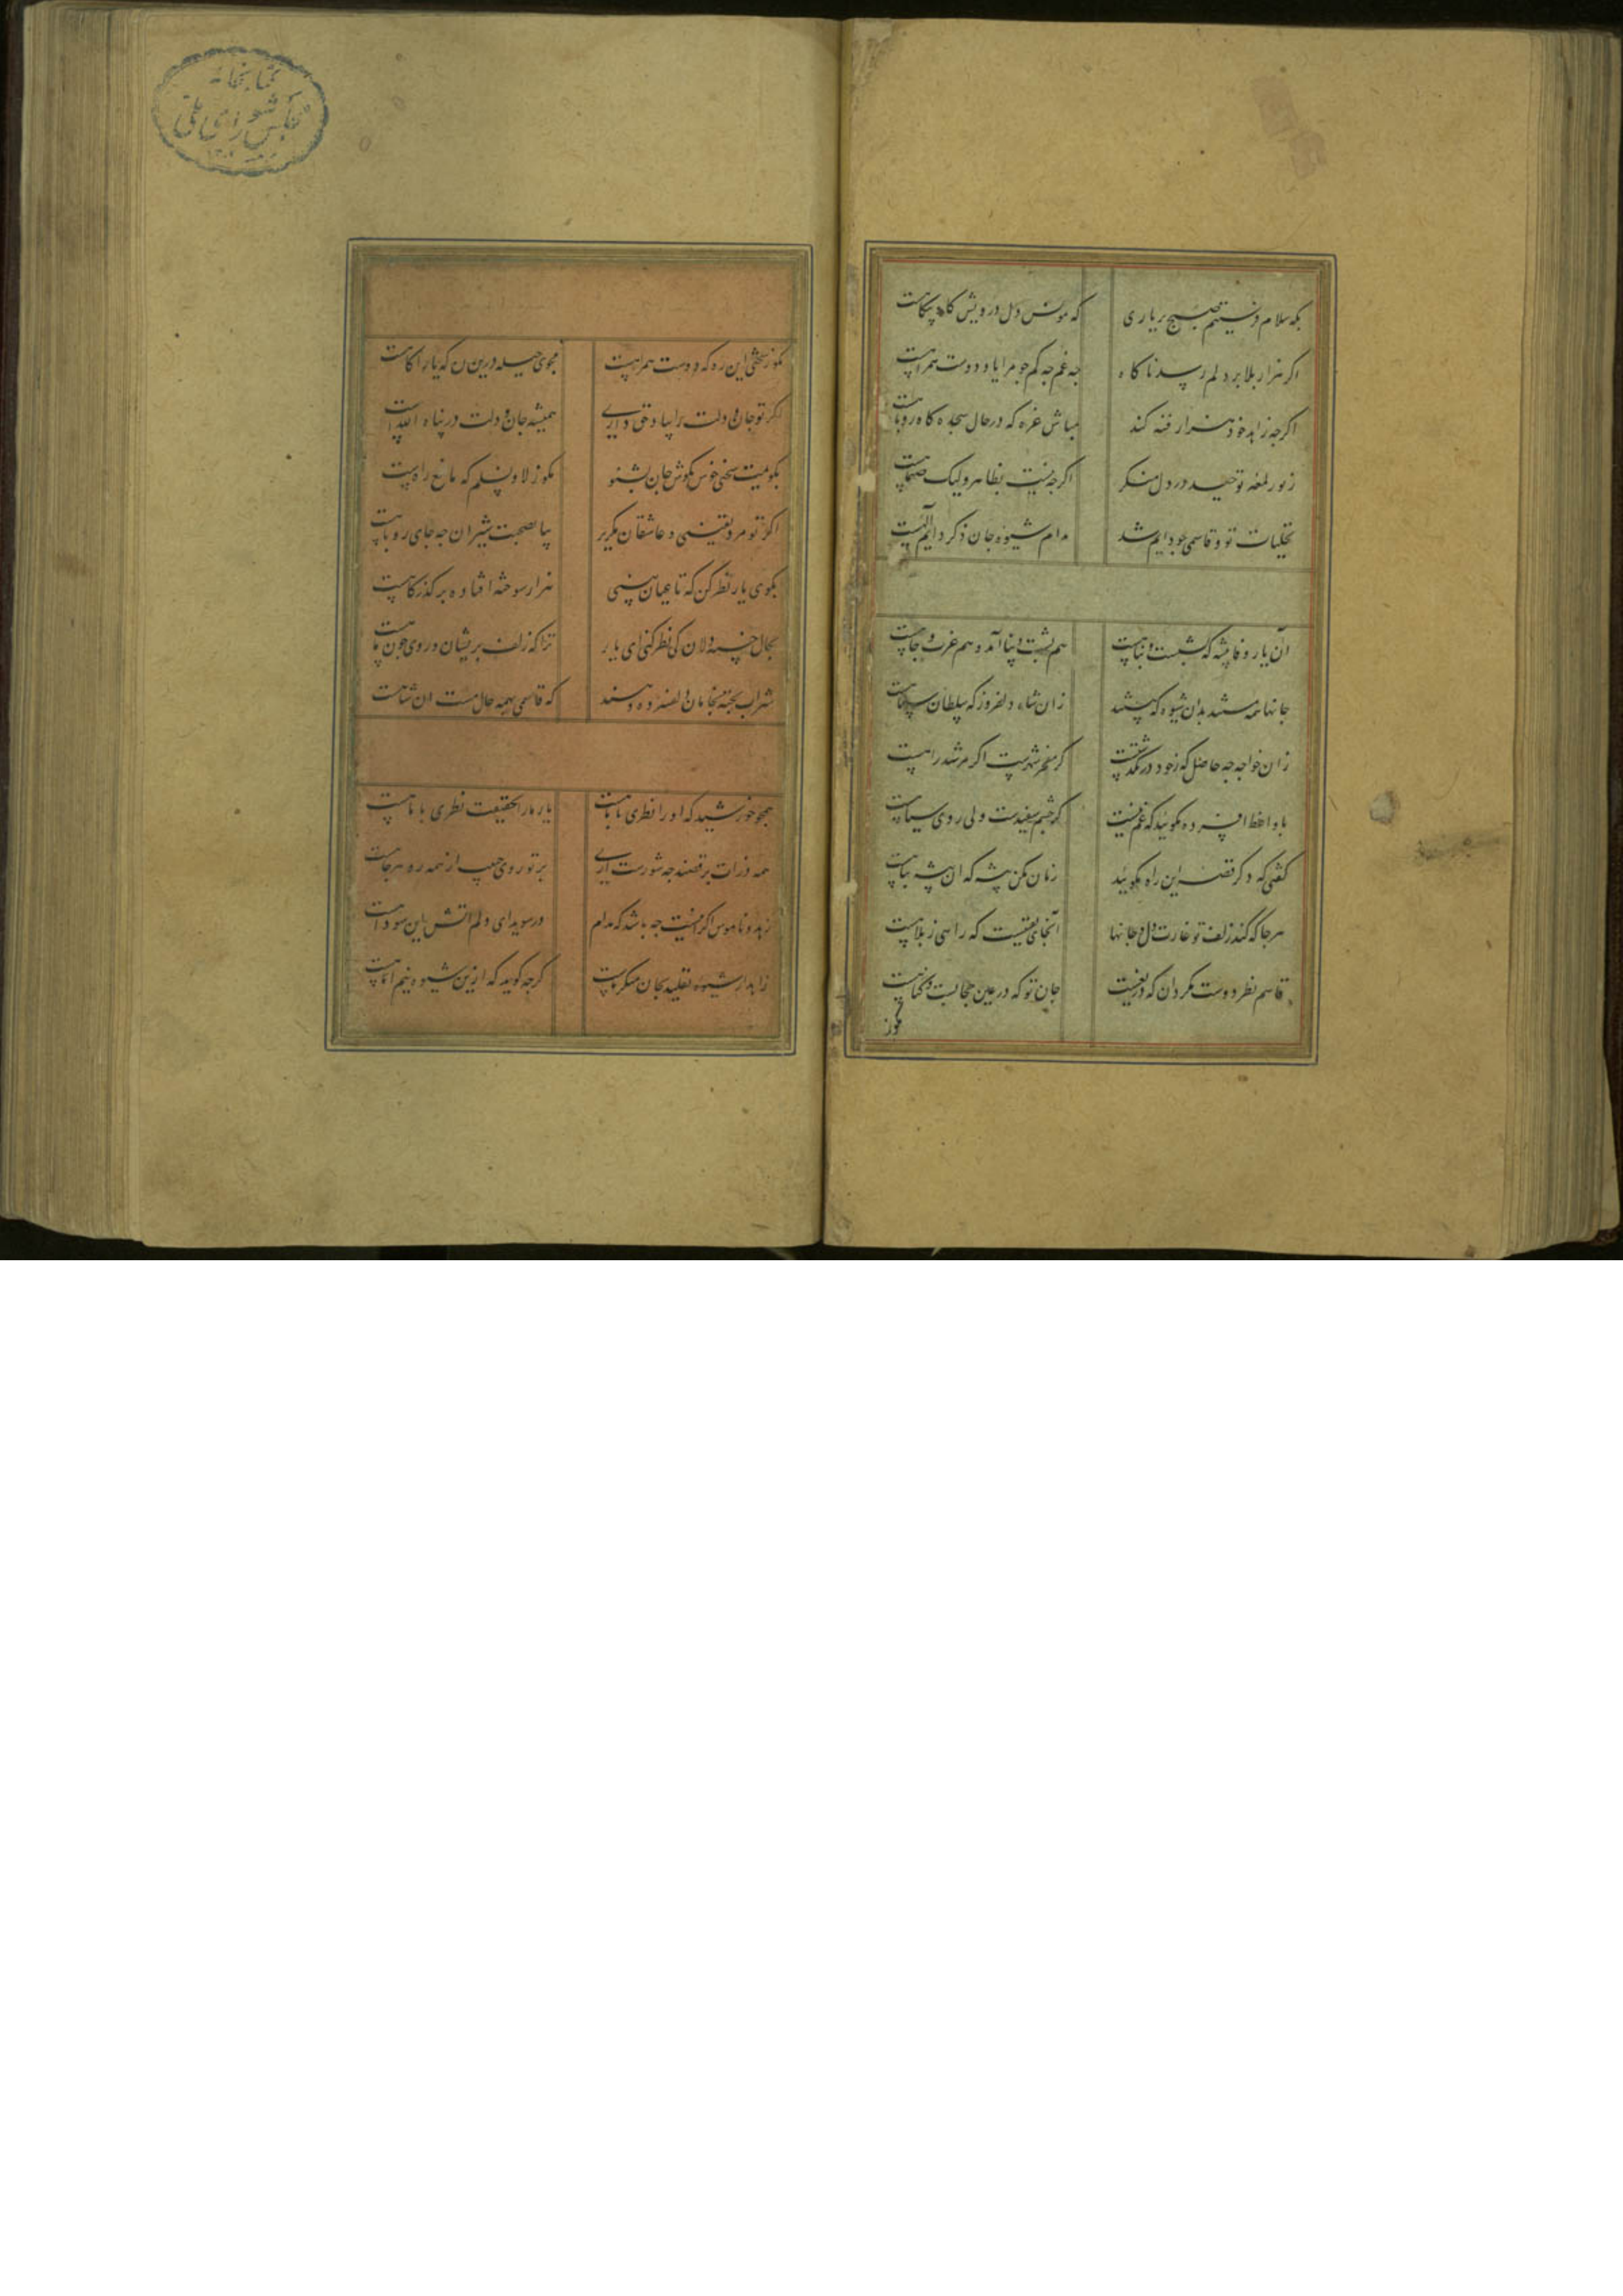 که مونس دل درویش گاه و بیگاهست
اگر هزار بلا بر دلم رسد ناگاه
چه غم چه کم چو مرا یاد دوست همراهست
اگرچه زاهد خود هزار فتنه کند
مباش غره که در حال سجده گاه روباهست
ز نور لمعه توحید در دل منکر
اگرچه نیست بظاهر ولیک
تجلیات تو و قاسمی چو دایم شد
مدام شیوه جان ذکر دایم اللهست
آن یار وفا پیشه که پشتست و پناهست
هم پشت و پناه آمد و هم عزت و جاهست
جانها همه مستند بدان شیوه که
زان شاه دلفروز که سلطان سپاهست
زان خواجه چه حاصل که ز خود در نگذشتست
گر مفخر شهرست اگر مرشد راهست
با واعظ افسرده مگویید که غم نیست
گر چشم سفیدست ولی روی سیاهست
گفتی که دگر قصه این راه مگویید
زمان مکن پیشه که آن پیشه تباهست
هرجا که کند زلف تو غارت دل و جانها
آنجای یقینست که راهی ز بلا هست
قاسم نظر دوست مگردان که
جان تو که در عین حجابست و گناهست
مگو ز
مگو ز سختی این ره که دوست همراهست
مجوی حیله درین که یار آگاهست
اگر تو جان و دلت را بیاد حق داری
همیشه جان و دلت در پناه اللهست
بگویمت سخنی خوش بگوش جان بشنو
مگو ز لا و نسلم که مانع راهست
اگر تو مرد یقینی ز عاشقان مگریز
بیا بصحبت شیران چه جای روباهست
بکوی یار نظر کن که تا عیان بینی
هزار سوخته افتاده بر گذرگاهست
بحال خسته دلان کی نظر کنی ای یار
ترا که زلف پریشان و روی چون ماهست
شراب پخته بخامان دلفسرده دهند
که قاسمی بهمه حال مست آن شاهست
همچو خورشید که او را نظری با ماهست
یار ما را بحقیقت نظری با ما هست
همه ذرات برقصند چه شورست آری
پرتو روی حبیب از همه رو هرجا هست
زهد و ناموس اگر نیست چه باشد که مدام
در سویدای دلم آتش این سودا هست
زاهد از شیوه تقلید بجان منکر ماست
گرچه گوید که ازین شیوه نیم اما هست
کتابخانه
مجلس شورای ملی